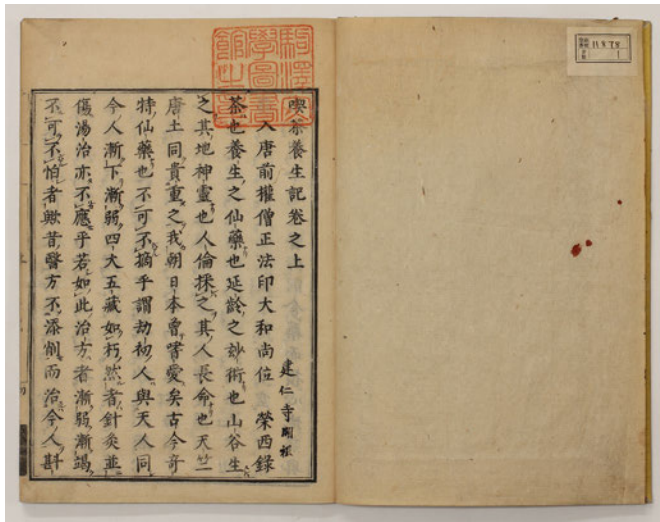 喫茶養生記卷之上
建仁寺開祖
入唐前權僧正法印大和尚位 榮西錄
茶也養生之仙藥也延齡之玅術也山谷生
之其地神靈也人倫採之其人長命也天竺
唐土同貴重之我朝日本曾嘗愛矣古今奇
特仙藥也不可不摘乎謂劫初人與天人同
今人漸下漸弱四大五藏如朽然者針灸並
傷湯治亦不應乎若如此治方者漸弱漸竭
不可不怕者歟昔醫方不添削而治今人斟
駒澤大
學圖書
館之章